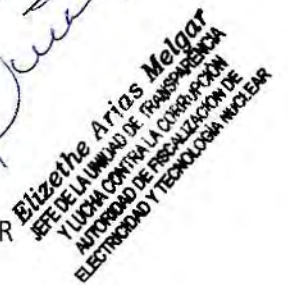 Elizethe Arias Melgar
JEFE DE LA UNIDAD DE TRANSPARENCIA
Y LUCHA CONTRA LA CORRUPCIÓN
AUTORIDAD DE FISCALIZACIÓN DE
ELECTRICIDAD Y TECNOLOGÍA NUCLEAR
R